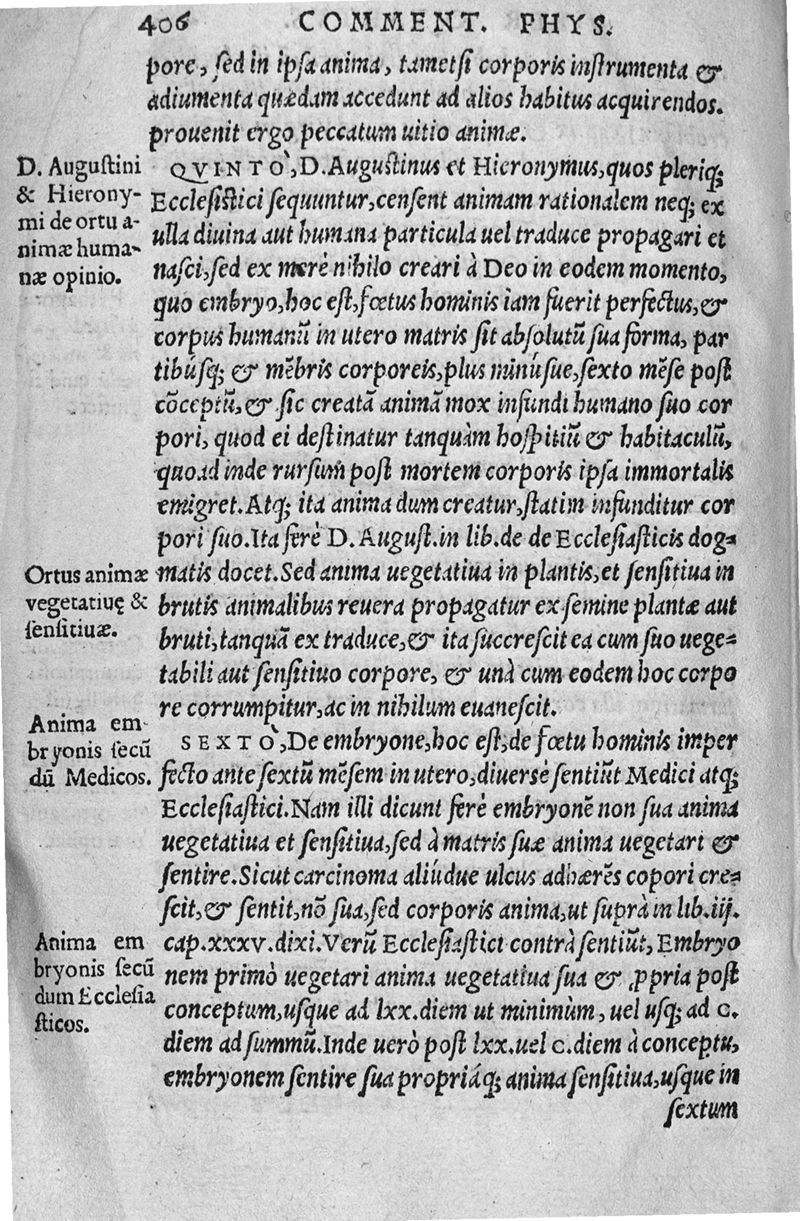 406 COMMENT. PHYS.
pore, sed in ipsa anima, tametsi corporis instrumenta &
adiumenta quædam accedunt ad alios habitus acquirendos.
prouenit ergo peccatum uitio animæ.
D. Augustini
& Hierony-
mi de ortu a-
nimæ huma-
næ opinio.
QVINTO`, D. Augustinus et Hieronymus, quos pleriq;
Ecclesistici sequuntur, censent animam rationalem neq; ex
ulla diuina aut humana particula uel traduce propagari et
nasci, sed ex merè nihilo creari à Deo in eodem momento,
quo embryo, hoc est, fœtus hominis iam fuerit perfectus, &
corpus humanũ in utero matris sit absolutũ sua forma, par
tibúsq; & mẽbris corporeis, plus minúsue, sexto mẽse post
cõceptũ, & sic creatã animã mox infundi humano suo cor
pori, quod ei destinatur tanquàm hospitiũ & habitaculũ,
quoad inde rursum post mortem corporis ipsa immortalis
emigret. Atq; ita anima dum creatur, statim infunditur cor
pori suo. Ita ferè D. August. in lib. de de Ecclesiasticis dog-
matis docet. Sed anima uegetatiua in plantis, et sensitiua in
brutis animalibus reuera propagatur ex semine plantæ aut
bruti, tanquã ex traduce, & ita succrescit ea cum suo uege-
tabili aut sensitiuo corpore, & unà cum eodem hoc corpo
re corrumpitur, ac in nihilum euanescit.
Ortus animæ
vegetatiuę &
sensitiuæ.
SEXTO`, De embryone, hoc est, de fœtu hominis imper
fecto ante sextũ mẽsem in utero, diuersè sentiũt Medici atq;
Ecclesiastici. Nam illi dicunt ferè embryonẽ non sua anima
uegetatiua et sensitiua, sed à matris suæ anima uegetari &
sentire. Sicut carcinoma aliúdue ulcus adhærẽs copori cre-
scit, & sentit, nõ sua, sed corporis anima, ut suprà in lib. iij.
cap. xxxv. dixi. Verũ Ecclesiastici contrà sentiũt, Embryo
nem primò uegetari anima uegetatiua sua & ꝓpria post
conceptum, usque ad lxx. diem ut minimùm, uel usq; ad c.
diem ad summũ. Inde uerò post lxx. uel c. diem à conceptu,
embryonem sentire sua propriáq; anima sensitiua, usque in
Anima em-
bryonis secũ
dũ Medicos.
Anima em
bryonis secũ
dum Ecclesia
sticos.
sextum